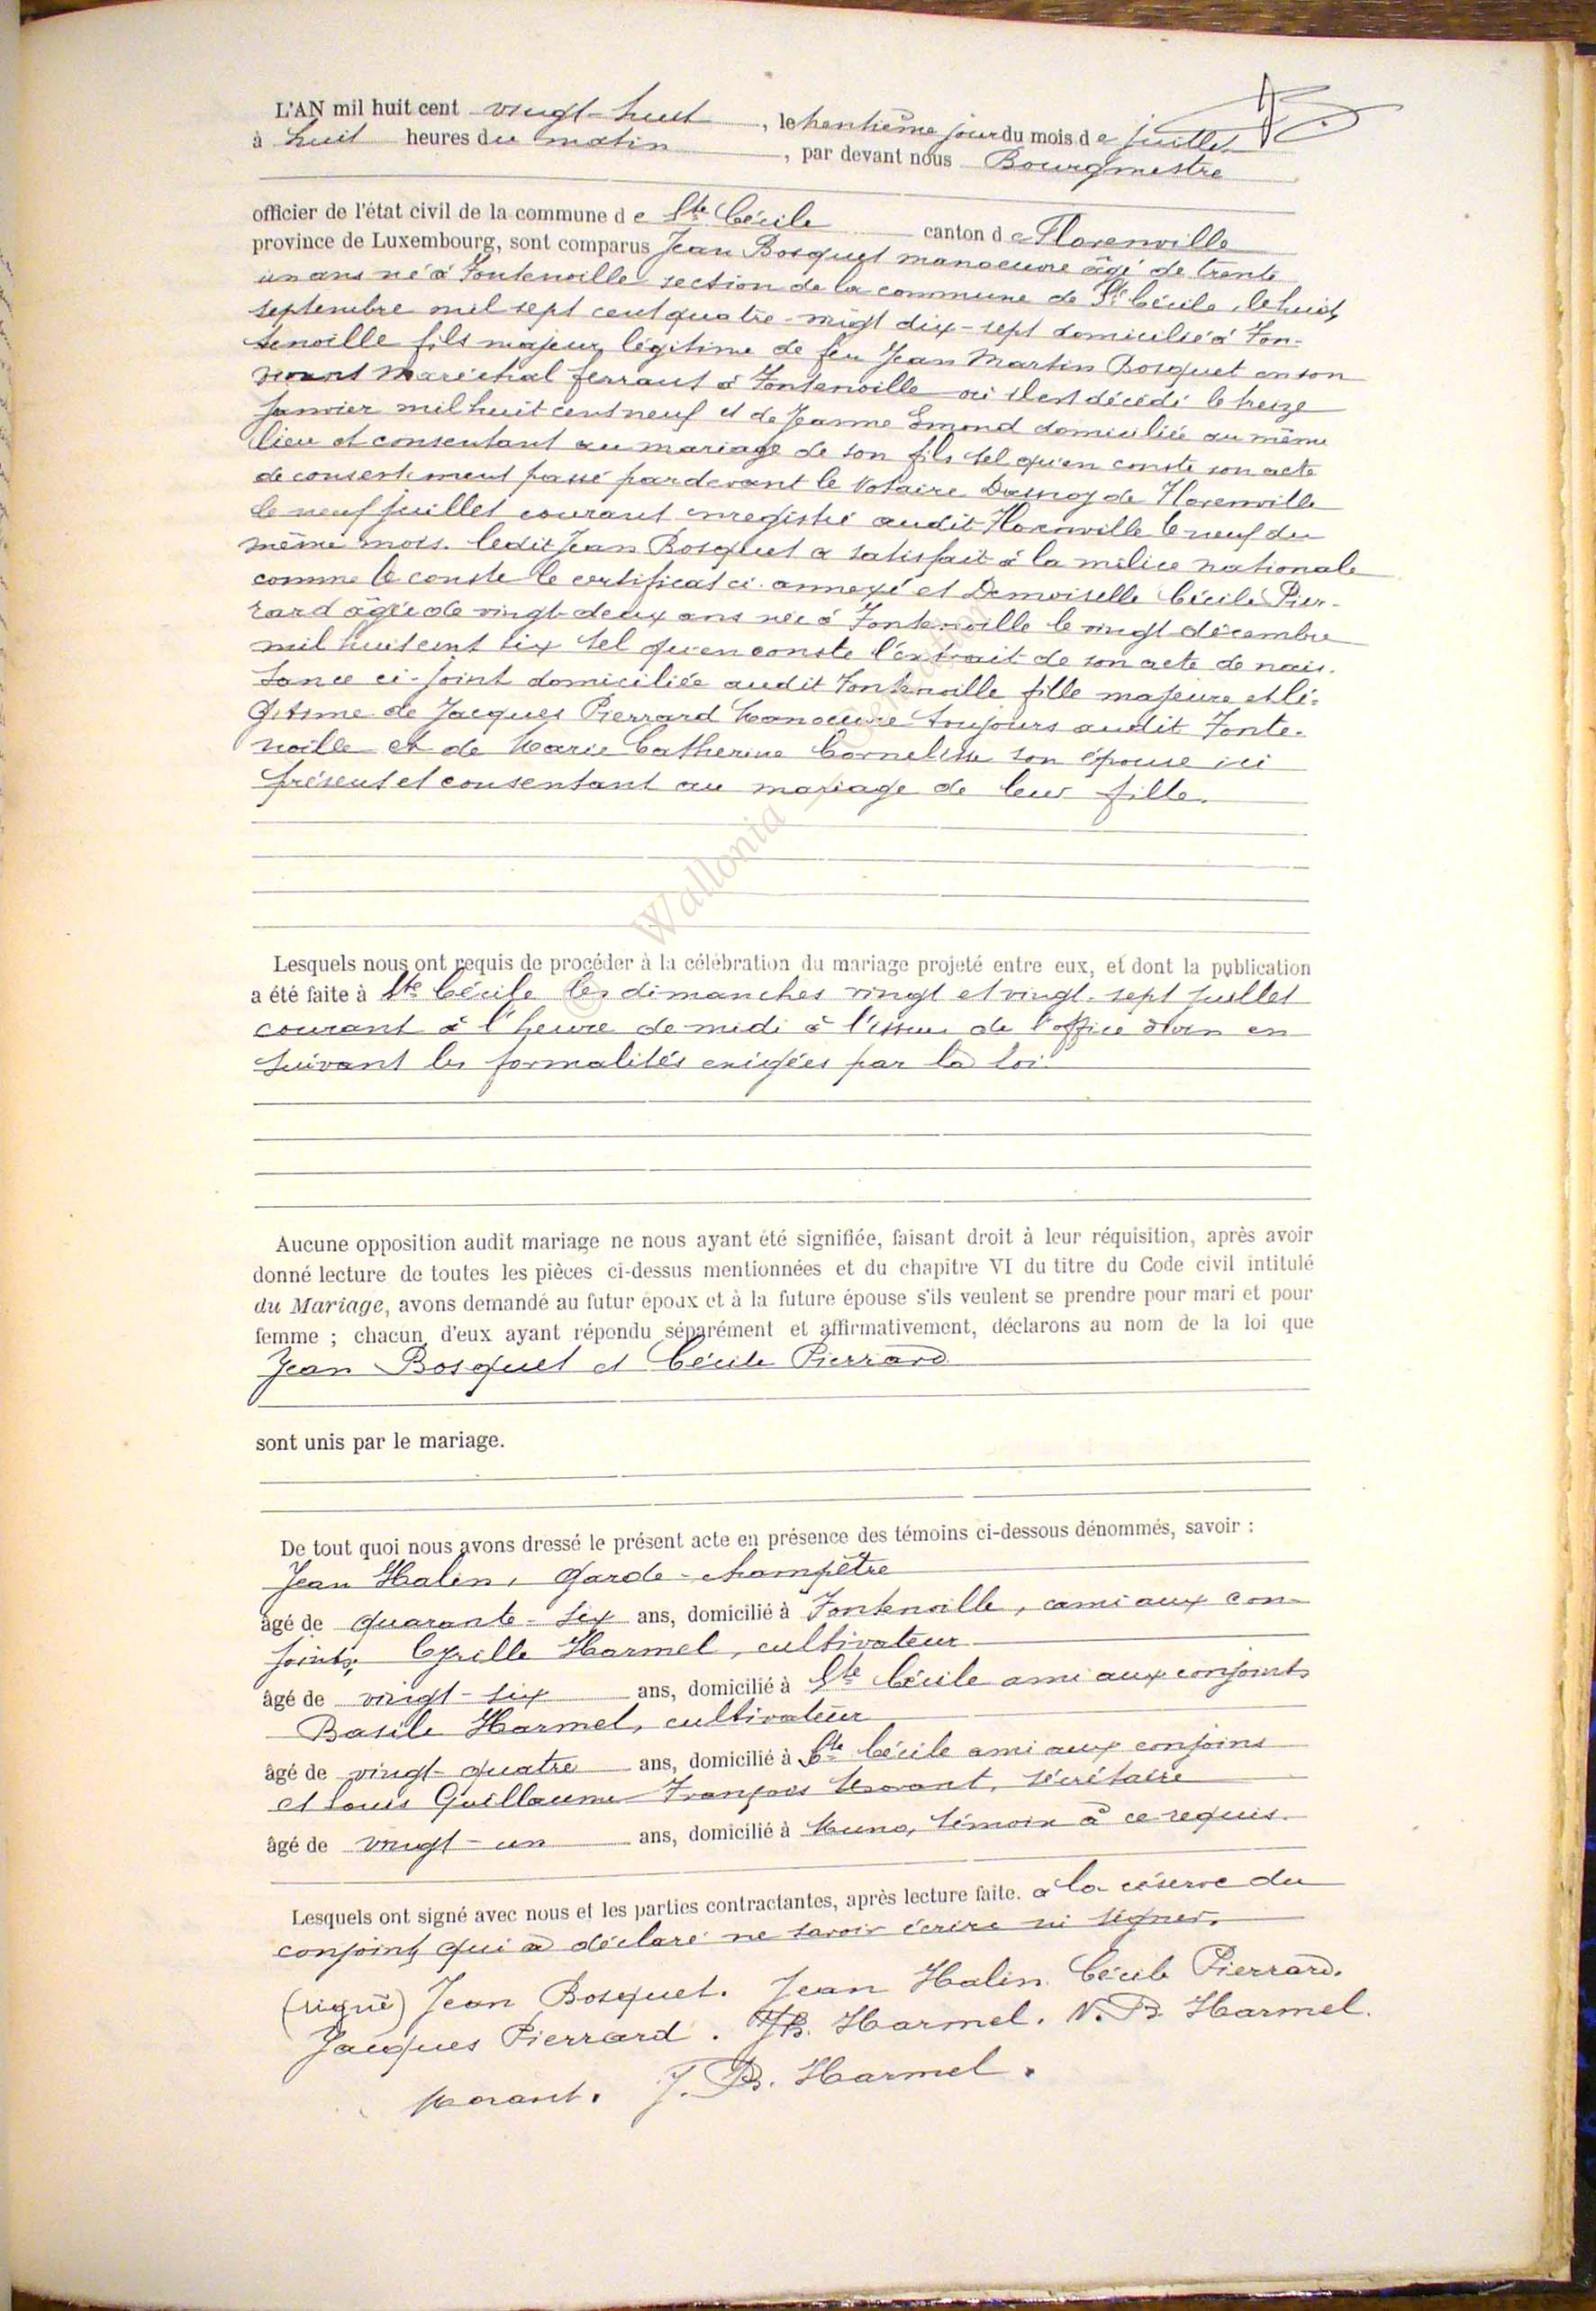 L'AN mil huit cent vingt-huit, le trentième jour du mois de juillet
à huit heures du matin, par devant nous Bourgmestre
officier de l'état civil de la commune de Ste Cécile canton de Florenville
province de Luxembourg, sont comparus Jean Bosquet manoeuvre âgé de trente
un ans né à Fontenoille section de la commune de Ste Cécile, le huit
septembre mil sept cent quatre-vingt dix-sept domicilié à Fon-
tenoille fils majeur légitime de feu Jean Martin Bosquet en son
vivant Maréchal ferrant à Fontenoille où il est décédé le treize
Janvier mil huit cent neuf et de Jeanne Emond domiciliée au même
lieu et consentant au mariage de son fils tel qu'en conste son acte
de consentement passé pardevant le Notaire de Florenville
le neuf juillet courant enregistré audit Florenville le neuf du
même mois. ledit Jean Bosquet a satisfait à la milice nationale
comme le conste le certificat ci-annexé et Demoiselle Cécile Pier-
rard âgée de vingt-deux ans née à Fontenoille le vingt décembre
mil huit cent six tel qu'en conste l'extrait de son acte de nais-
sance ci-joint domiciliée audit Fontenoille fille majeure et lé-
gitime de Jacques Pierrard Manoeuvre toujours audit Fonte-
noille et de Marie Catherine Cornelisse son épouse ici
présent et consentant au mariage de leur fille.
© Wallonia
Lesquels nous ont requis de procéder à la célébration du mariage projeté entre eux, et dont la publication
a été faite à Ste Cécile les dimanches vingt et vingt-sept juillet
courant à l'heure de midi à l'issue de l'office divin en
suivant les formalités exigées par la loi.
Aucune opposition audit mariage ne nous ayant été signifiée, faisant droit à leur réquisition, après avoir
donné lecture de toutes les pièces ci-dessus mentionnées et du chapitre VI du titre du Code civil intitulé
du Mariage, avons demandé au futur époux et à la future épouse s'ils veulent se prendre pour mari et pour
femme ; chacun d'eux ayant répondu séparément et affirmativement, déclarons au nom de la loi que
Jean Bosquet et Cécile Pierrard
sont unis par le mariage.
De tout quoi nous avons dressé le présent acte en présence des témoins ci-dessous dénommés, savoir :
Jean Halin, garde-champêtre
âgé de quarante-six ans, domicilié à Fontenoille, ami aux con-
joints, Cyrille Harmel, cultivateur
âgé de vingt-six ans, domicilié à Ste Cécile ami aux conjoints
Basile Harmel, cultivateur
âgé de vingt-quatre ans, domicilié à Ste Cécile ami aux conjoins
et Louis Guillaume François Morant, sécrétaire
âgé de vingt-un ans, domicilié à Muno, témoin à ce requis.
Lesquels ont signé avec nous et les parties contractantes, après lecture faite. à la réserve du
conjoint, qui a déclaré ne savoir écrire ni signer.
(signé) Jean Bosquet. Jean Halin. Cécile Pierrard.
Jacques Pierrard. JB. Harmel. N. B. Harmel.
Morant. J. B. Harmel.